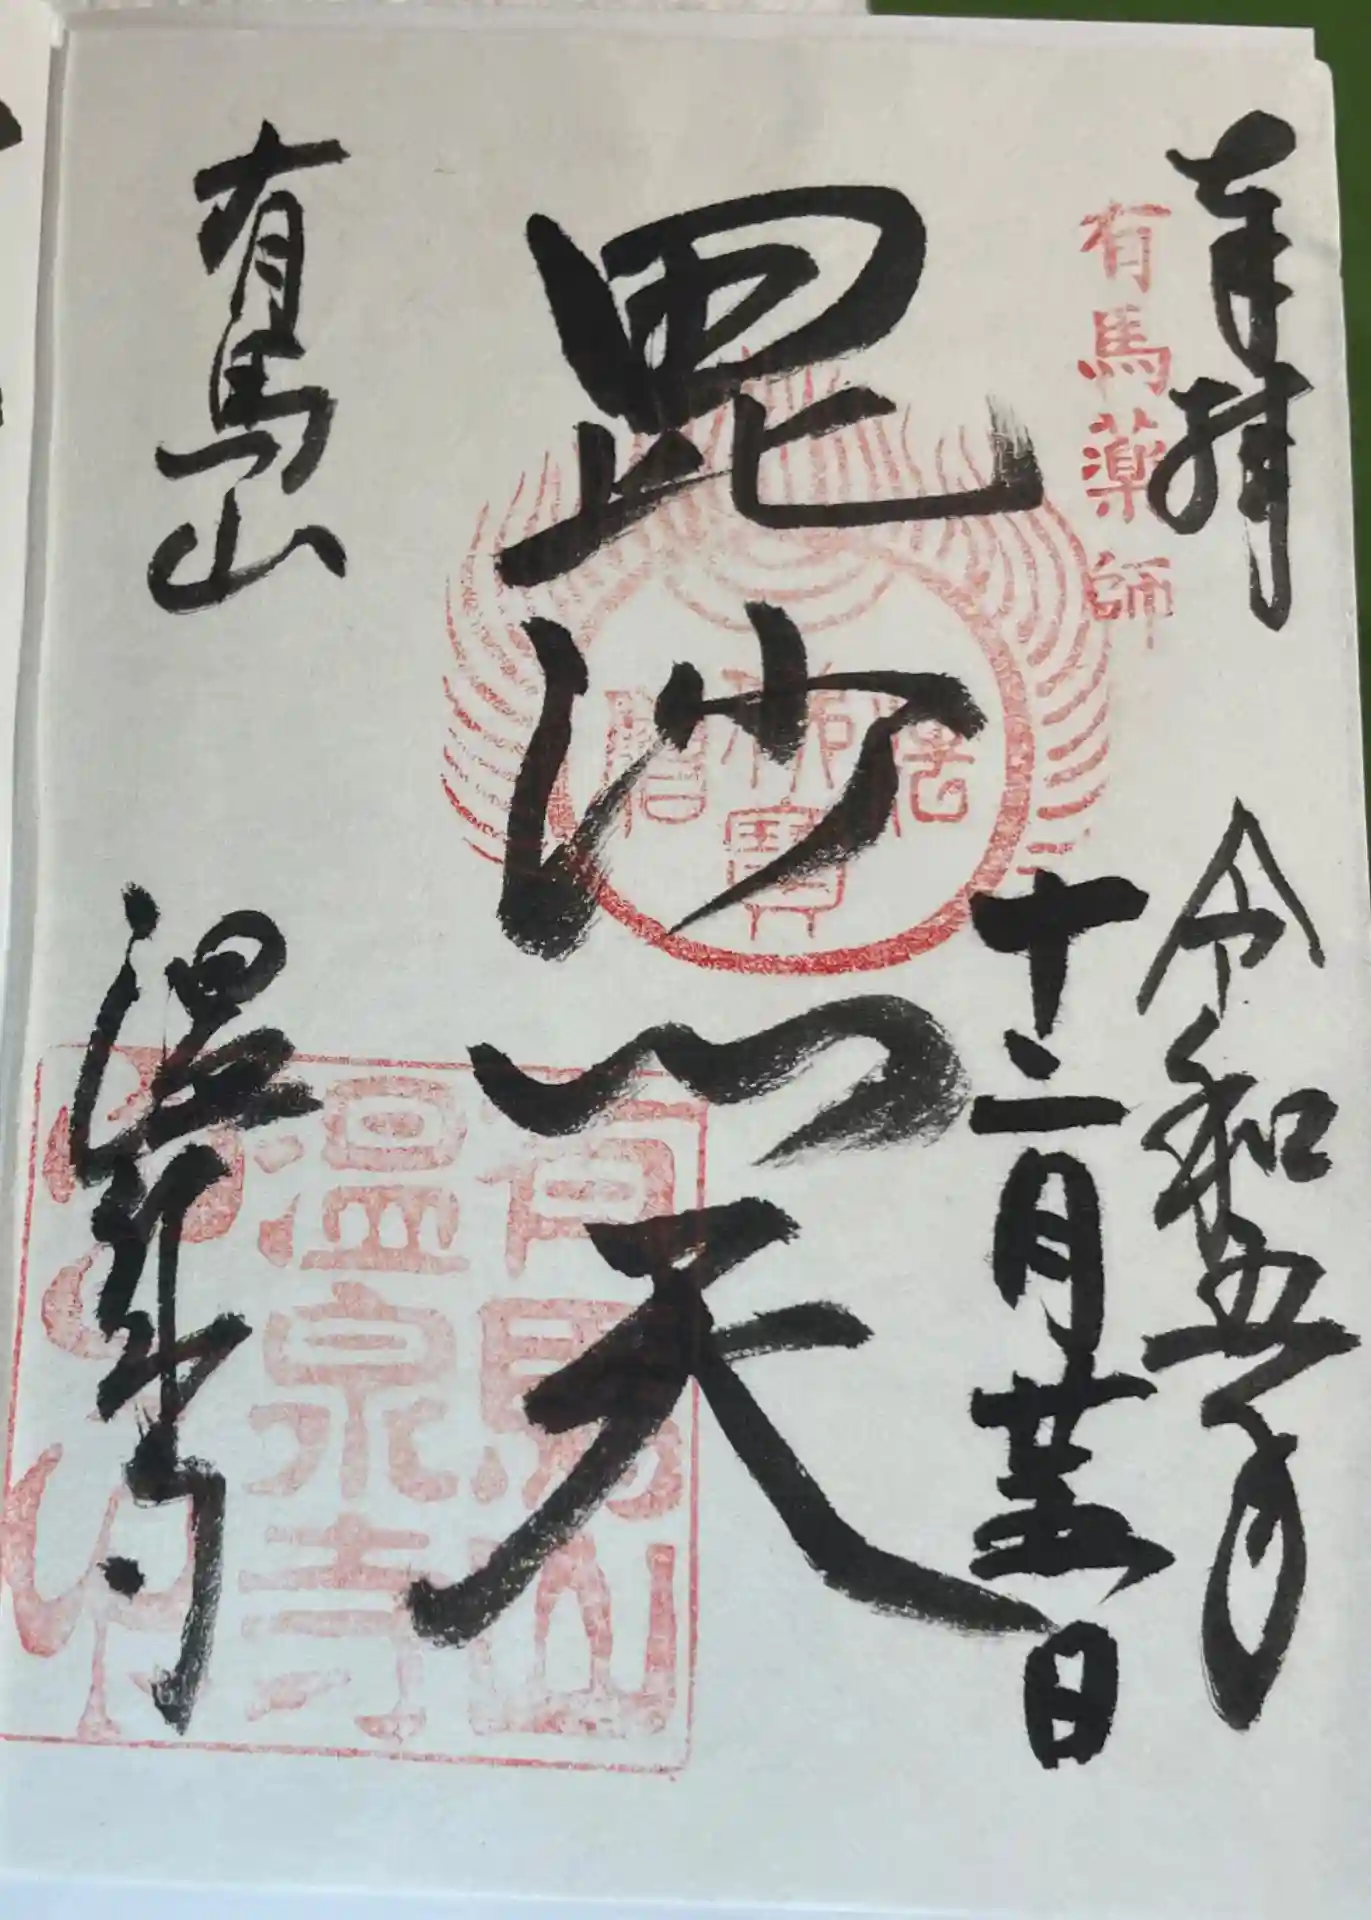 奉拝
令和五年
有馬薬師
十二月廿五日
毘沙門天
佛法僧寶
有馬山
温泉寺
有馬山
温泉寺